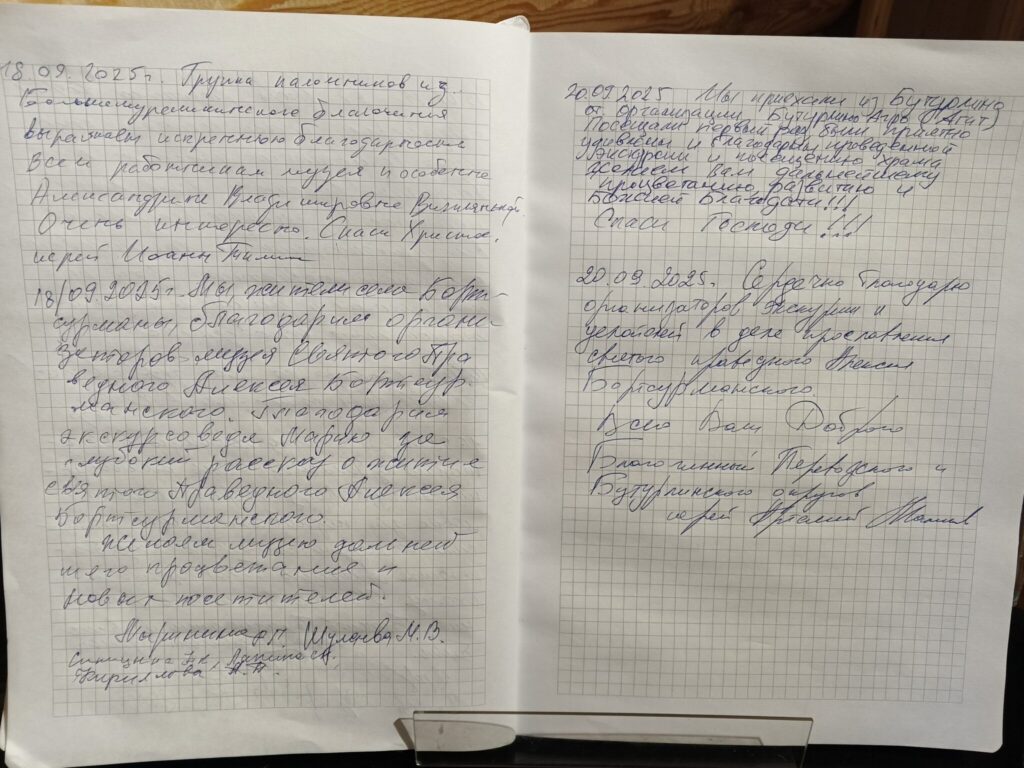 18.09.2025г. Группа паломников из
Большемурашкинского благочиния
выражает искреннюю благодарность
всем работникам музея и особенно
Александрине Владимировне
Очень интересно. Спаси Христос.
иерей Иоанн
18/09.2025г. Мы, жители села Борт-
сурманы, благодарим органи-
заторов музея Святого Пра
ведного Алексея Бортсур
манского. Благодарим
экскурсовода Марию за
глубокий рассказ о житие
святого Праведного Алексея
Бортсурманского.
Желаем музею дальней
шего процветания и
новых посетителей.
М.В.
Кириллова
20.09.2025 Мы приехали из Бутурлино
от организации Бутурлино Агро (Агат)
Посещали первый раз, были приятно
удивлены и благодарны проведенной
экскурсии и посещению храма
Желаем Вам дальнейшему
процветанию, развитию и
Божией Благодати!!!
Спаси Господи!!!
20.09.2025г. Сердечно благодарю
организаторов экскурсии и
в деле прославления
святого праведного Алексия
Бортсурманского.
Всего Вам Доброго
Благочинный Перевозского и
Бутурлинского округов
иерей